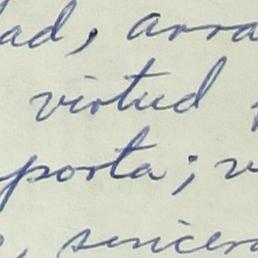 dad, arra
virtud
porta; v
, sincera